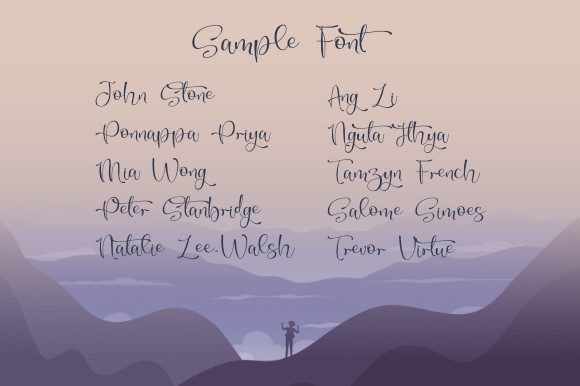 Sample Font
John Stone
Ponnappa Priya
Mia Wong
Peter Stanbridge
Natalie Lee-Walsh
Ang Li
Nguta Ithya
Tamzyn French
Salome Simoes
Trevor Virtue